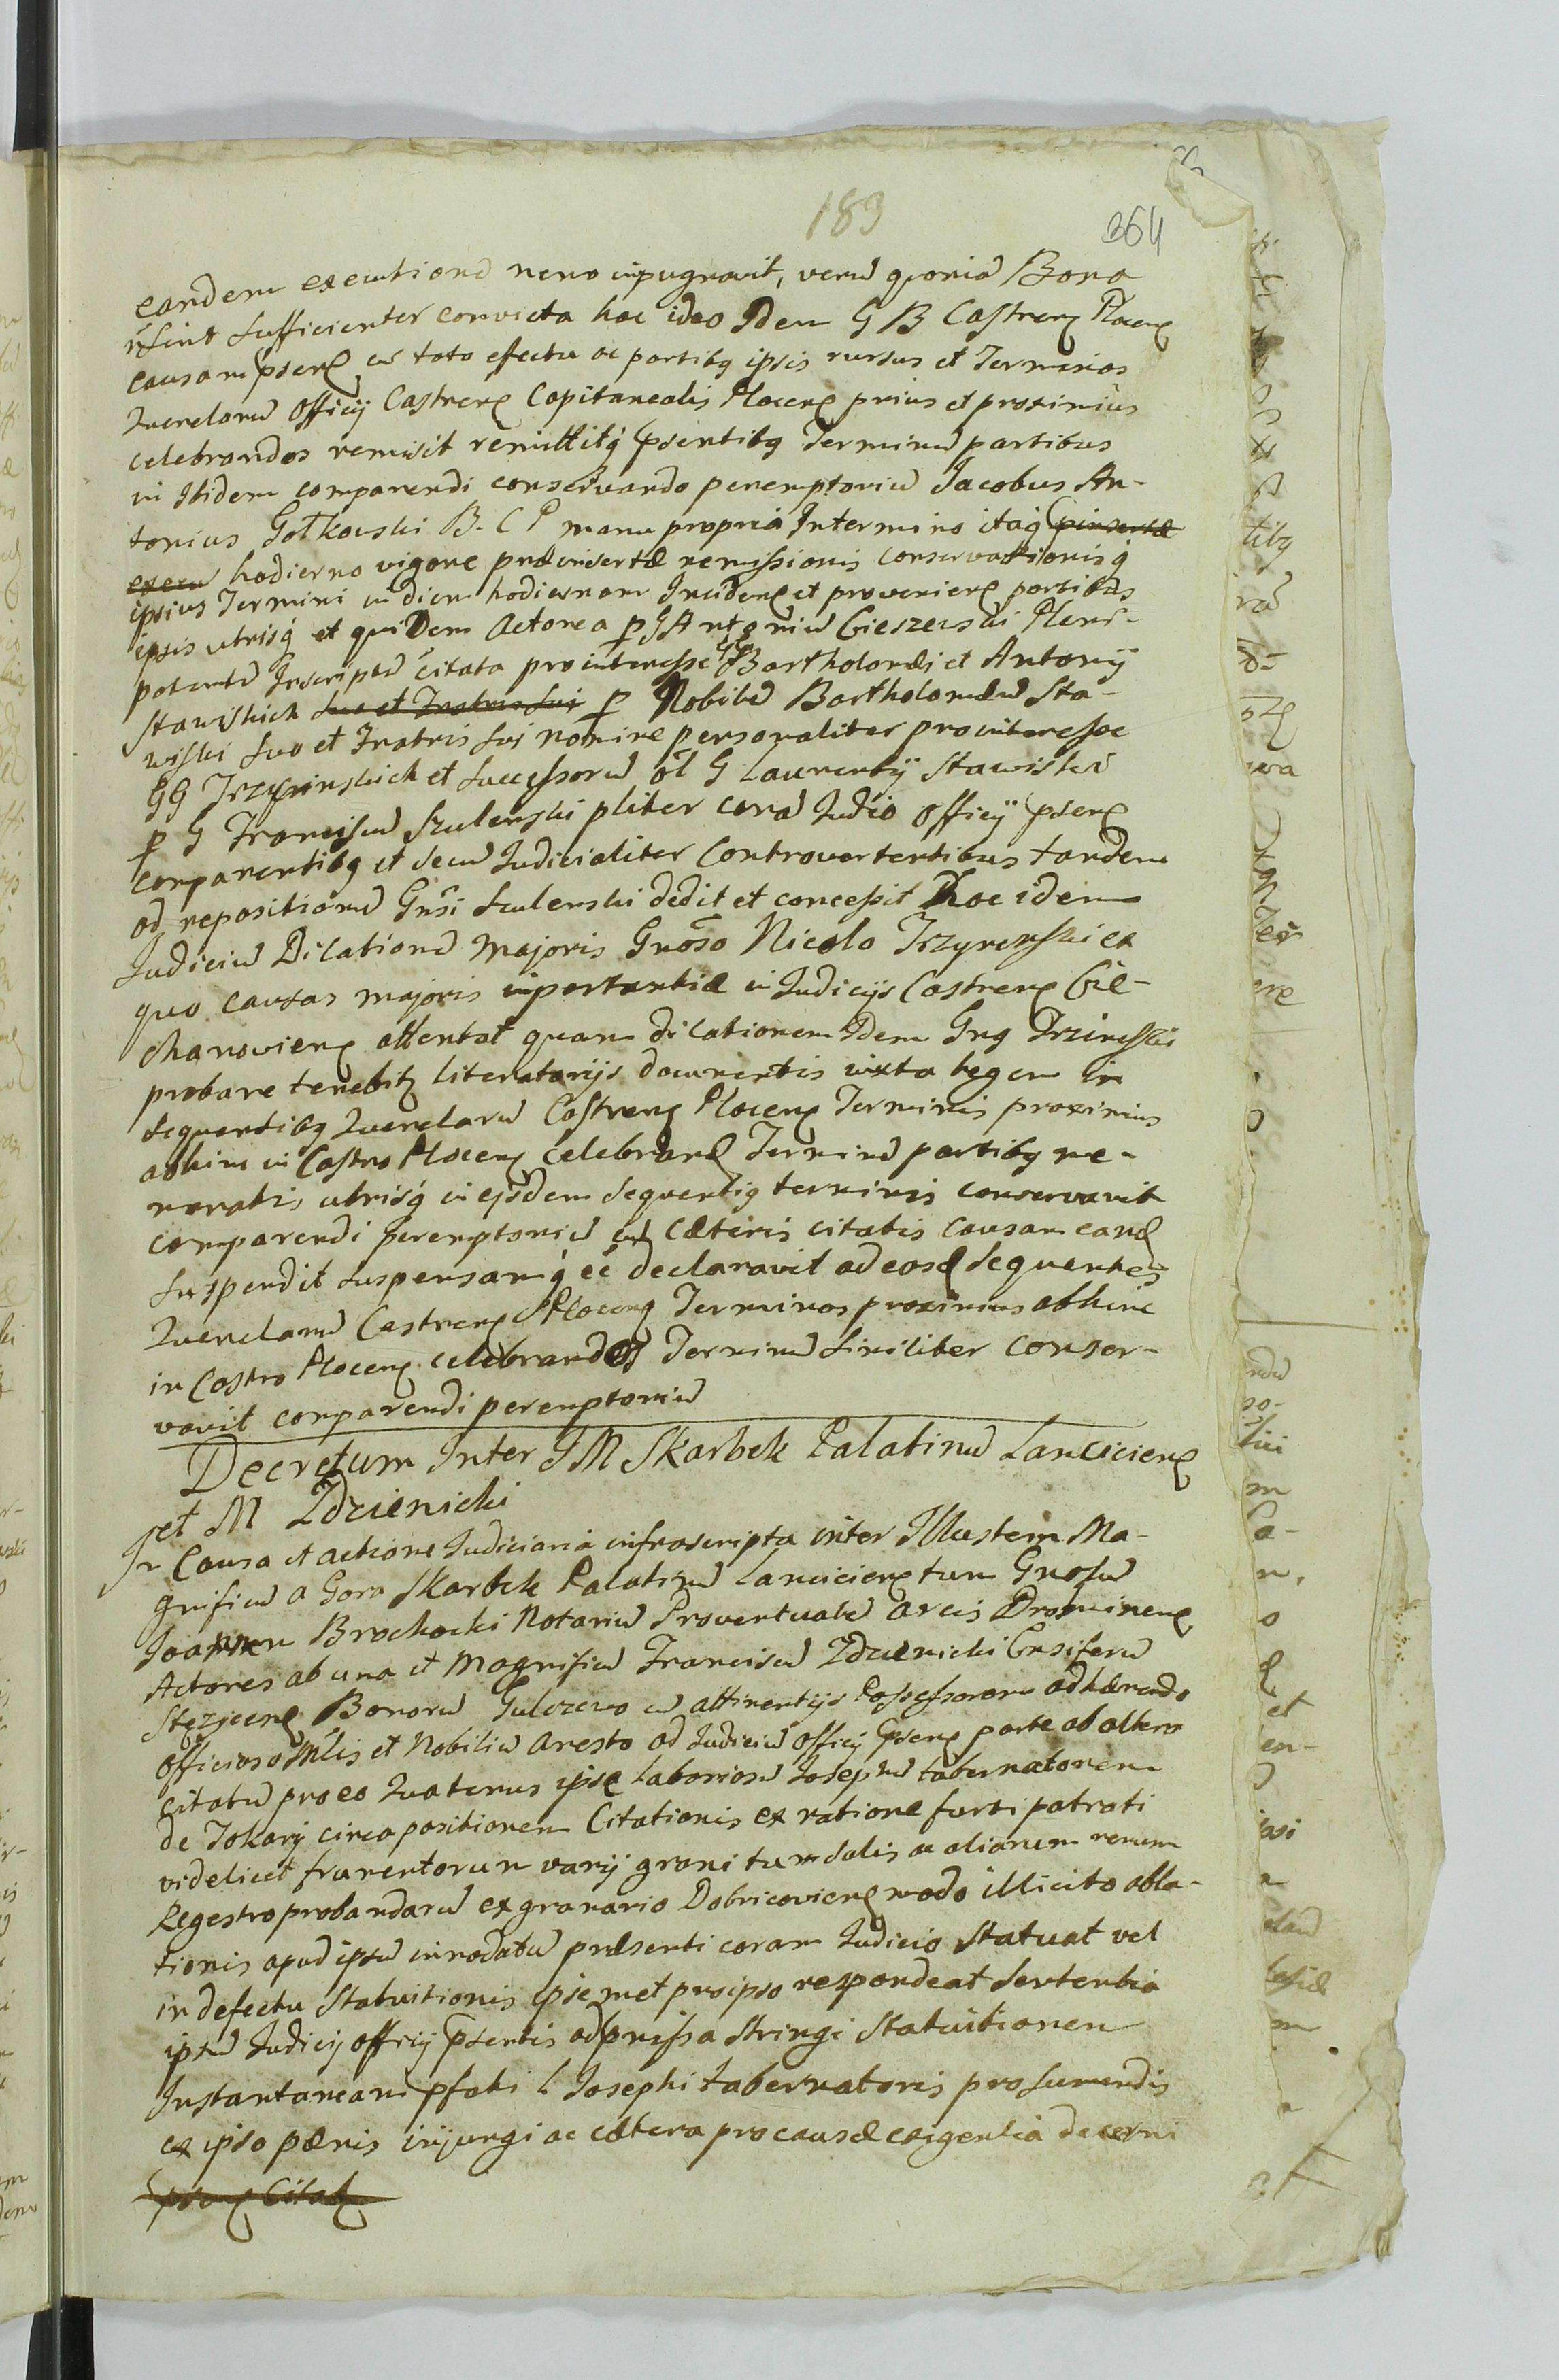 183
364
eandem executionē nemo inpugnavit, verū qꝫoniā Bona
n̄ sint sufficienter convicta hac ideo Idem G B Castrenꝫ Plocenꝫ
causam psenꝫ cū toto effectu ac partibꝫ ipsis rursus et Terminos
Querelarū Officij Castrenꝫ Capitanealis Plocenꝫ prius et proximius
celebrandos remisit remittitq́ psentibꝫ Terminū partibus
in Ibidem comparendi conservando peremptoriū Jacobus An-
tonius Gołkowski B. C P manu propria Intermino itaq́
hodierno vigore præinsertæ remissionis conservationisq́
ipsius Termini in diem hodiernam Incidenꝫ et provenienꝫ partibus
ipsis utrisq́ et quidem Actorea ꝑ G Antoniū Cieszewski Pleni-
potentē Inscriptū citata pro interesse GG Bartholomæi et Antonij
Stawiskich suo et Fratris sui ꝑ Nobilē Bartholomæū Sta-
wiski suo et Fratris sui nomine personaliter pro interesse
GG Trzcinskich et Successorū ol G Laurentij Stawiski
ꝑ G Franciscū Szulenski pliter corā Judio Officij psenꝫ
comparentibꝫ et secū Judicialiter Controvertentibus tandem
ad repositionē Gnsi Sulenski dedit et concessit Hoc idem
Judiciū Dilationē Majoris Gnoso Nicolo Trzcinski ex
quo causas majoris inportantiæ in Judicijs Castrenꝫ Cie-
chanovienꝫ attentat quam dilationem Idem Gnꝫ Trzcinski
probare tenebitꝫ literatorijs documentis iuxta legem in
sequentibꝫ Querelarū Castrenꝫ Plocenꝫ Terminis proximius
abhinc in Castro Plocenꝫ celebrandꝫ Terminū partibꝫ me-
moratis utrisq́ in ejsdem sequentibꝫ terminis conservavit
comparendi peremptoriū cū cæteris citatis causam eandꝫ
suspendit suspensamq́ eē declaravit ad eosdꝫ sequentes
Querelarū Castrenꝫ Plocenꝫ Terminos proximius abhinc
in Castro Plocenꝫ celebrandos Terminū similiter conser-
vavit comparendi peremptoriū
Decretum Inter J M Skarbek Palatinū Lanciciensꝫ
et M Zdzienicki
In Causa et actione Judiciaria infrascripta inter Illustem Ma-
gnificū a Gora Skarbek Palatinū Lanciciensꝫ tum Gnosū
Joannem Brochocki Notariū Proventualē arcis Drominenꝫ
Actores ab una et Magnificū Franciscū Zdzienicki Ensiferū
Stęzycenꝫ Bonorū Gulczewo cū attinentijs Possessorem adhærendo
officioso Mlis et Nobiliū aresto ad Judiciū Officij psenꝫ parte ab altera
citatū pro eo Quatenus ipse laboriosū Josephū tabernatorem
de Tokary circa positionem Citationis ex ratione furti patrati
videlicet frumentorum varij grani tum salis ac aliarum rerum
Regestro probandarū ex granario Dobricovienꝫ modo illicito abla-
tionis apud ipsū innodatū præsenti coram Judicio Statuat vel
in defectu Statuitionis ipsemet pro ipso respondeat Sententia
ipsū Judicij officij psentis ad pmissa stringi Statuitionem
Instantaneam pfati L Josephi tabernatoris pro sumendis
ex ipso pænis injungi ac cætera pro causæ exigentia decerni
psenꝫ Citatꝫ